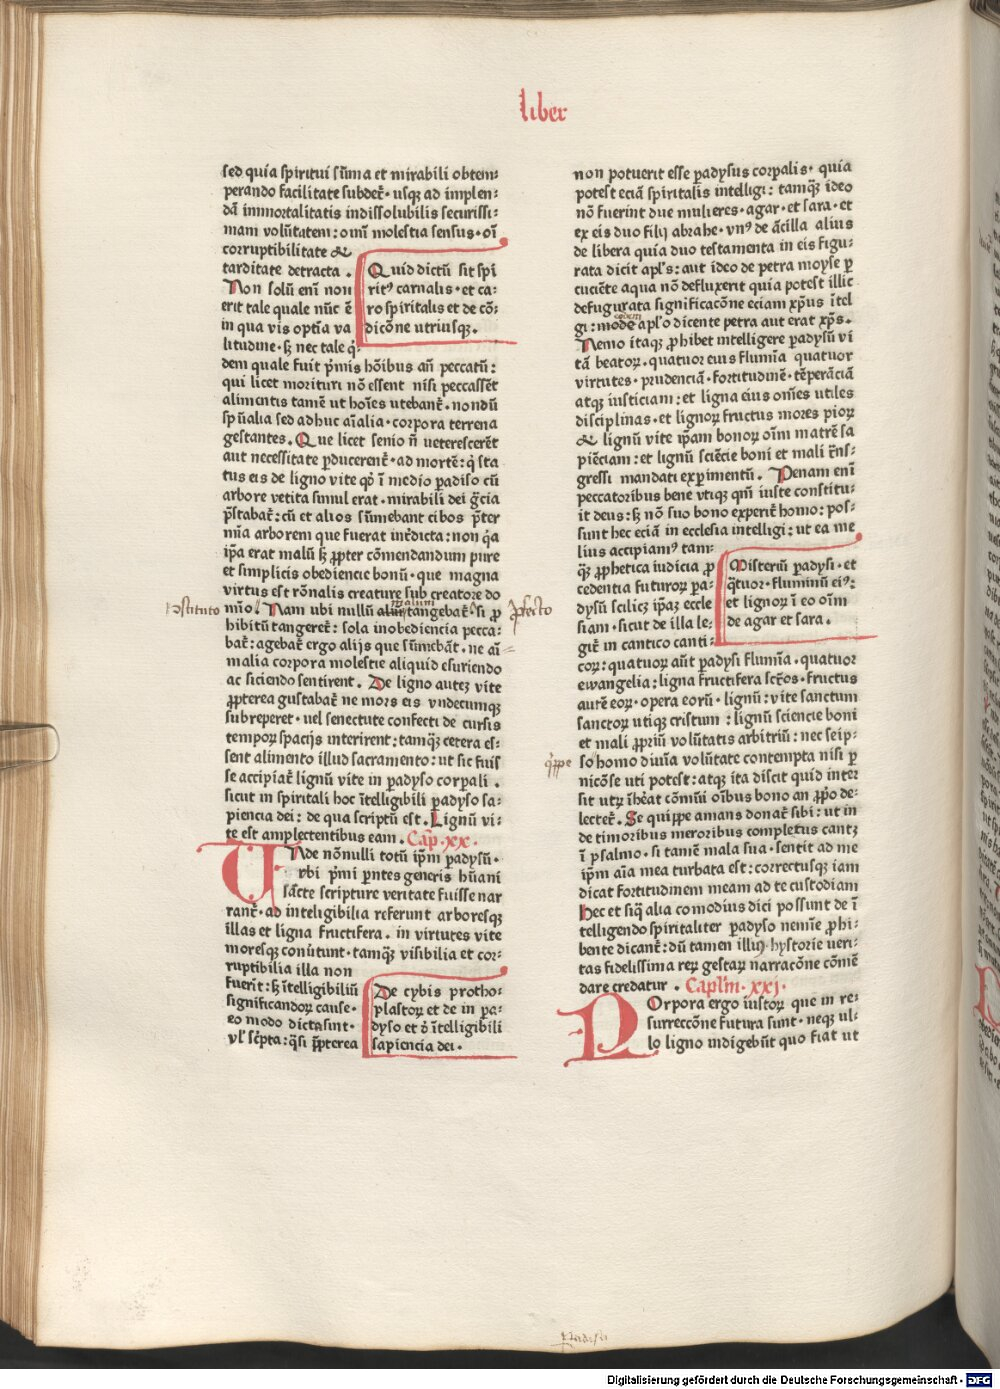 liber
sed quia spiritui sūma et mirabili obtem⸗
perando facilitate subdet̄· usqꝫ ad implen⸗
dā immortalitatis indissolubilis securissi⸗
mam volūtatem: omī molestia sensus· oī
corruptibilitate &
tarditate detracta .
Non solū enī non
erit tale quale nūc ē
in qua vis optīa va
litudine· sꝫ nec tale q̄⸗
Quid dictū sit spi
ritꝰ carnalis· et ca⸗
ro spiritalis et de cō⸗
dicōne utriusqꝫ.
dem quale fuit p̄mis hōibus añ peccatū:
qui licet morituri nō essent nisi peccassēt
alimentis tamē ut hoīes utebant̄· nondū
spūalia sed adhuc aīalia· corpora terrena
gestantes. Que licet senio ñ ueterescerēt
aut necessitate ꝑducerent̄· ad mortē: q̄ sta
tus eis de ligno vite qꝺ ī medio ꝑadiso cū
arbore vetita simul erat· mirabili dei gr̄cia
p̄stabat̄: cū et alios sūmebant cibos p̄ter
vnīa arborem que fuerat int̄dicta: non q̄a
ip̄a erat malū sꝫ ꝓpter cōmendandum pure
et simplicis obediencie bonū· que magna
virtus est rōnalis creature sub creatore do
mīo. Nam ubi nullū aliū tangebat̄· si ꝓ
malum
ꝯstituto
ꝓfecto
hibitū tangeret̄: sola inobediencia pecca⸗
bat̄: agebat̄ ergo alijs que sūmebāt· ne aī⸗
malia corpora molestie aliquid esuriendo
ac siciendo sentirent. De ligno autez vite
ꝓpterea gustabat̄ ne mors eis vndecumqꝫ
subreperet· vel senectute confecti de cursis
tempoꝝ spacijs interirent: tamqꝫ cetera es⸗
sent alimento illud sacramento: ut sic fuis
se accipiat̄ lignū vite in ꝑadyso corpali .
sicut in spiritali hoc ītelligibili ꝑadyso sa⸗
piencia dei: de qua scriptū est. Lignū vi⸗
te est amplectentibus eam. Cap̄. xx.
Vnde nōnulli totū ip̄m ꝑadysū·
vbi p̄mi ꝑntes generis hūani
sācte scripture veritate fuisse nar
rant̄· ad inteligibilia referunt arboresqꝫ
illas et ligna fructifera. in virtutes vite
moresqꝫ conūtunt· tamqꝫ visibilia et cor⸗
ruptibilia illa non
fuerīt: sꝫ ītelligibiliū
significandoꝝ cause·
eo modo dicta sunt·
vl̄ sc̄pta: q̄si ꝓpterea
De cybis protho⸗
plastoꝝ et de in ꝑa⸗
dyso et ꝺ ītelligibili
sapiencia dei.
non potuerit esse ꝑadysus corpalis· quia
potest eciā spiritalis intelligi: tamqꝫ ideo
nō fuerint due mulieres· agar· et sara· et
ex eis duo filij abrahe· vnꝰ de ācilla alius
de libera quia duo testamenta in eis figu⸗
rata dicit apl̄s: aut ideo de petra moyse ꝑ
cuciēte aqua nō defluxerit quia potest illic
defugurata significacōne eciam xp̄us ītel
gi: mode apl̄o dicente petra aut erat xp̄s.
eodem
Nemo itaqꝫ ꝓhibet intelligere ꝑadysū vi
tā beatoꝝ· quatuor eius flumīa quatuor
virtutes· prudenciā· fortitudinē· tēperāciā
atqꝫ iusticiam: et ligna eius om̄es utiles
disciplinas· et lignoꝝ fructus mores pioꝝ
& lignū vite ip̄am bonoꝝ oīm matrē sa
piēciam: et lignū sciēcie boni et mali t̄ns⸗
gressi mandati experimentū. Penam enī
peccatoribus bene vtiqꝫ qm̄ iuste constitu⸗
it deus: sꝫ nō suo bono experit̄ homo: pos⸗
sunt hec eciā in ecclesia intelligi: ut ea me
lius accipiamꝰ tam⸗
qꝫ ꝓphetica iudicia ꝓ
cedentia futuroꝝ pa⸗
dysū scilicꝫ ip̄aꝫ eccle
siam· sicut de illa le⸗
git̄ in cantico canti⸗
Misteriū ꝑadysi· et
q̄tuor· fluminū eiꝰ:
et lignoꝝ ī eo oīm
de agar et sara.
coꝝ: quatuoꝝ aūt ꝑadysi flumīa· quatuor
ewangelia: ligna fructifera sc̄tos· fructus
autē eoꝝ· opera eorū· lignū: vite sanctum
sanctoꝝ utiqꝫ cristum : lignū sciencie boni
et mali ꝓpriū volūtatis arbitriū: nec seip⸗
so homo diuīa volūtate contempta nisi ꝑ
qꝑꝑe
nicōse uti potest: atqꝫ ita discit quid inter
sit utꝝ īheāt cōmūi oībus bono an ꝓpo de⸗
lectet̄. Se quippe amans donat̄ sibi: ut in
de timoribus meroribus completus cantꝫ
ī psalmo. si tamē mala sua· sentit ad me
ip̄m aīa mea turbata est: correctusqꝫ iam
dicat fortitudinem meam ad te custodiam
Hec et siq̄ alia comodius dici possunt de ī
telligendo spiritaliter ꝑadyso nemīe ꝓhi⸗
bente dicant̄: dū tamen illiꝰ hystorie ueri⸗
tas fidelissima reꝝ gestaꝝ narracōne cōmē
dare credatur . Capl̄m. xxj.
Corpora ergo iustoꝝ que in re⸗
surreccōne futura sunt· neqꝫ ul⸗
lo ligno indigebūt quo fiat ut
Digitalisierung gefördert durch die Deutsche Forschungsgemeinschaft - DFG